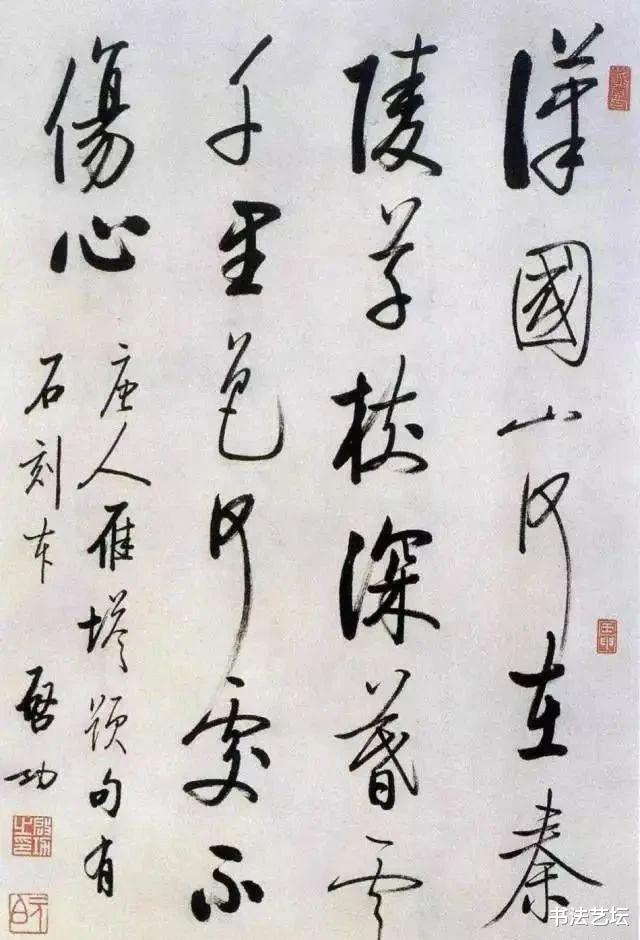 漢國山河在秦
陵草樹深暮雲
千里色何處不
傷心
唐人雁塔題句有
石刻本 啓功
啓功之印
元白
书法艺坛